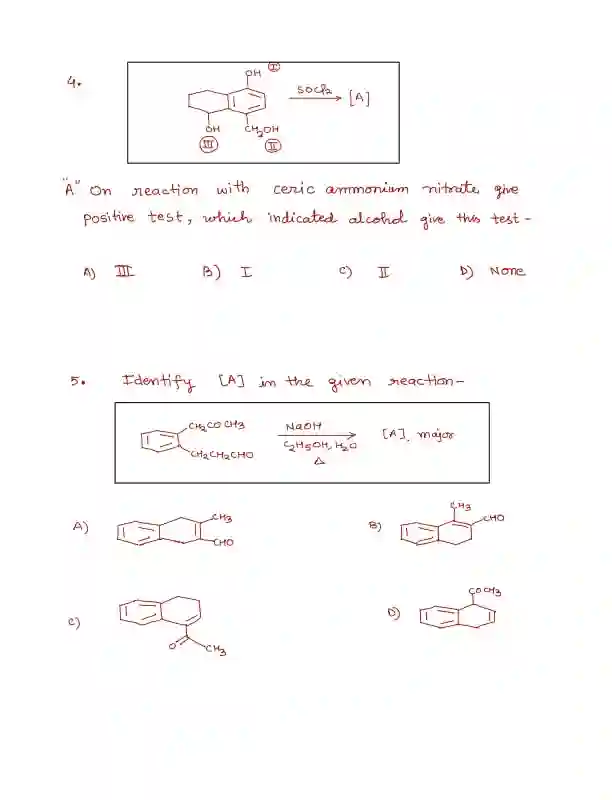 4.
OH I
SOCl2
[A]
OH CH2OH
III II
"A" On reaction with ceric ammonium nitrate give
positive test, which indicated alcohol give this test -
A) III B) I C) II D) None
5. Identify [A] in the given reaction-
CH2COCH3
NaOH
C2H5OH, H2O
Δ
[A], major
CH2CH2CHO
A) CH3
CHO
B) CH3
CHO
C) O CH3
D) COCH3